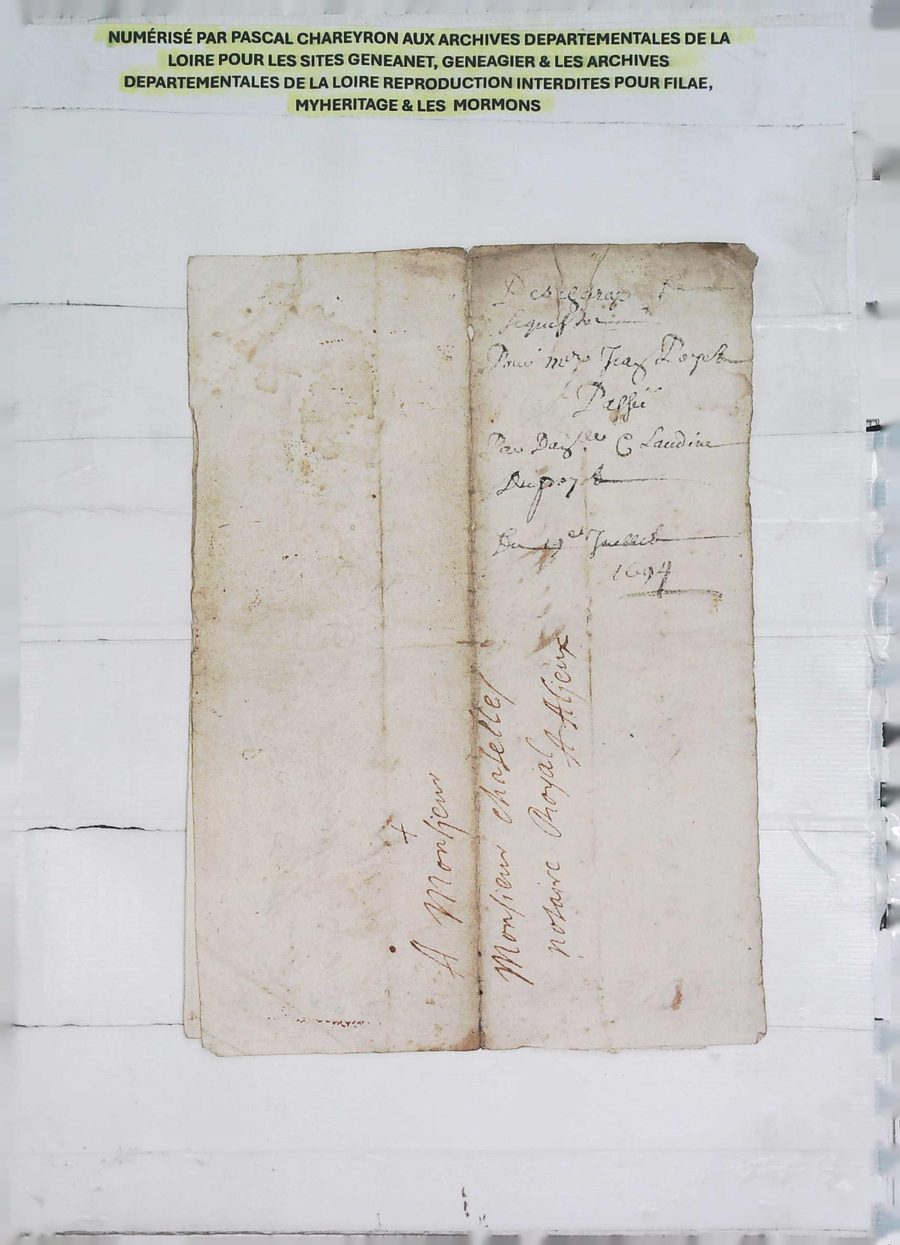 NUMÉRISÉ PAR PASCAL CHAREYRON AUX ARCHIVES DEPARTEMENTALES DE LA
LOIRE POUR LES SITES GENEANET, GENEAGIER & LES ARCHIVES
DEPARTEMENTALES DE LA LOIRE REPRODUCTION INTERDITES POUR FILAE,
MYHERITAGE & LES MORMONS
Pour
Passé
Par C Laudine
Dupoyt
Du 19e Juillet
1694
A Monsieur
Monsieur chaselles
notaire Royal
A Alieux